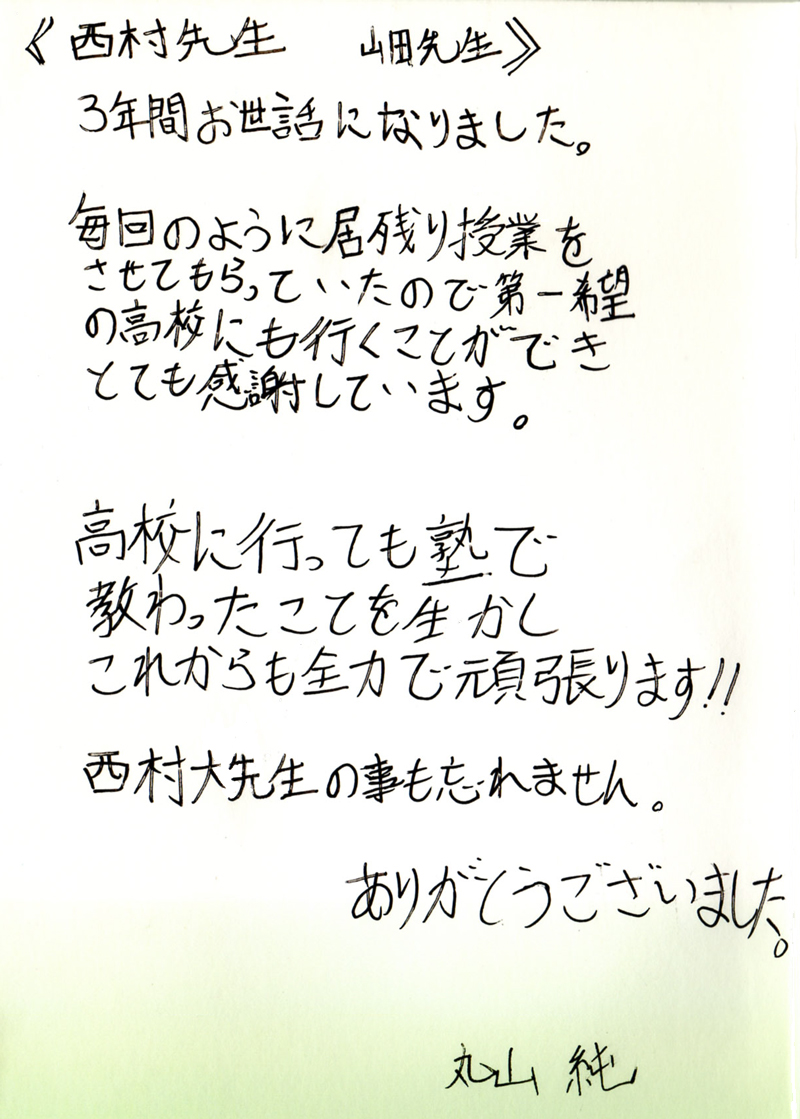 《西村先生 山田先生》
3年間お世話になりました。
毎回のように居残り授業を
させてもらっていたので第一希望
の高校にも行くことができ
とても感謝しています。
高校に行っても塾で
教わったことを生かし
これからも全力で頑張ります!!
西村大先生の事も忘れません。
ありがとうございました。
丸山 純